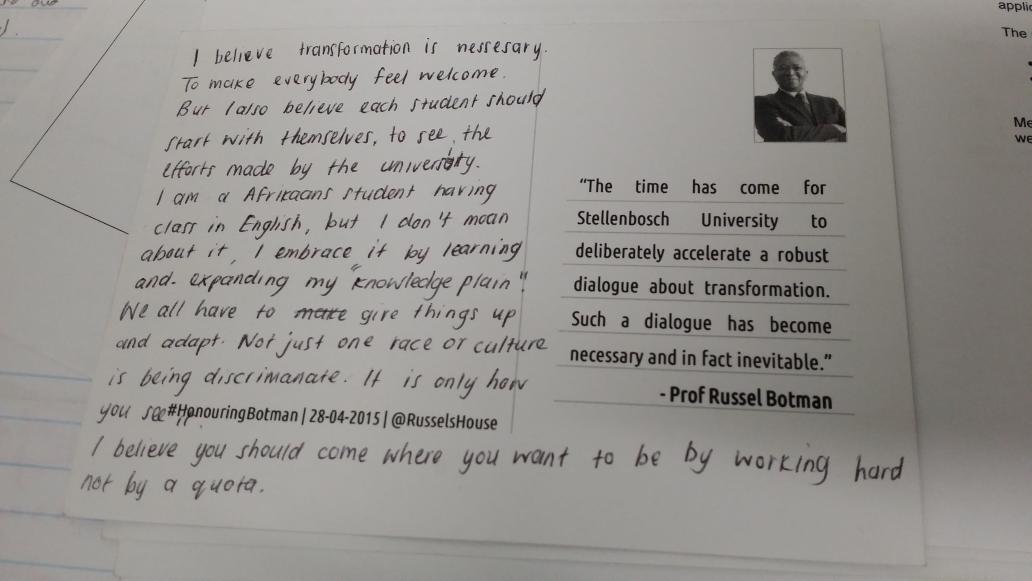 I believe transformation is nessesary.
To make everybody feel welcome.
But I also believe each student should
start with themselves, to see, the
efforts made by the university.
I am a Afrikaans student having
class in English, but I don't moan
about it, I embrace it by learning
and. expanding my "knowledge plain".
We all have to make give things up
and adapt. Not just one race or culture
is being discrimanate. It is only how
you see it.
#HonouringBotman | 28-04-2015 | @RusselsHouse
I believe you should come where you want to be by working hard
not by a quota.
"The time has come for
Stellenbosch University to
deliberately accelerate a robust
dialogue about transformation.
Such a dialogue has become
necessary and in fact inevitable."
- Prof Russel Botman
applic
The
Me
we